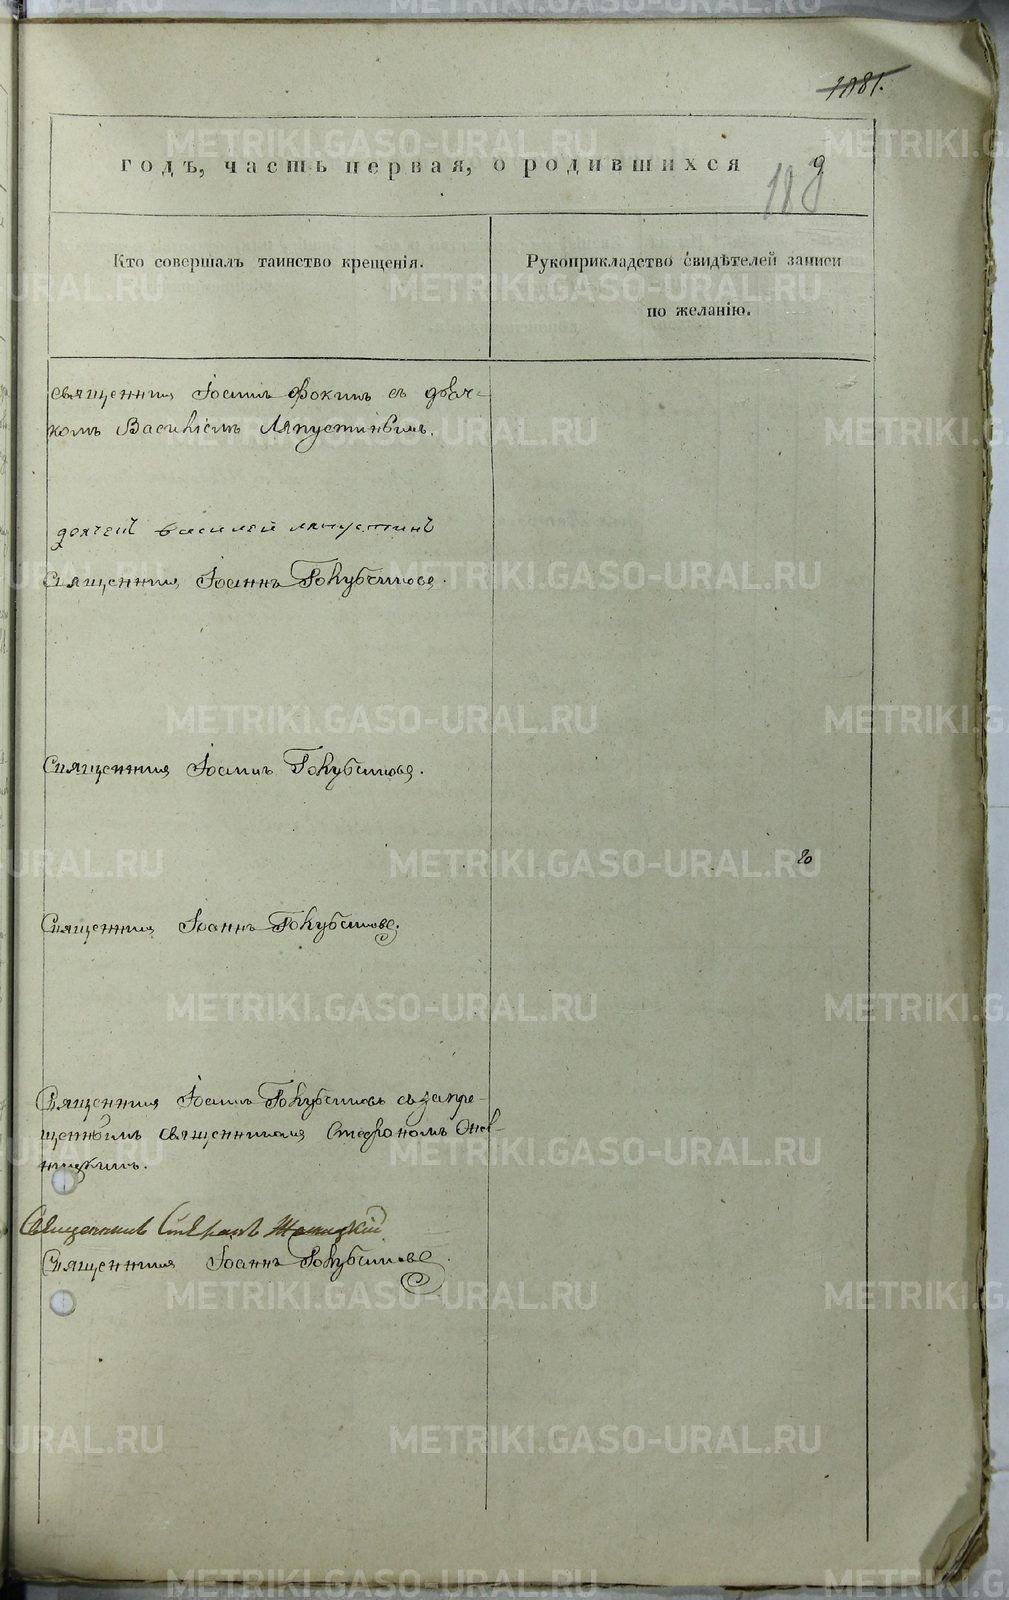 1181.
годъ, часть первая, о родившихся
118
Кто совершалъ таинство крещенія.
Рукоприкладство свидѣтелей записи
по желанію.
священникъ Іоаннъ Фокинъ съ дьяч-
комъ Василіемъ Ляпустинымъ.
дьячекъ василей ляпустинъ
Священникъ Іоаннъ Голубчиковъ.
Священникъ Іоаннъ Голубчиковъ.
Священникъ Іоаннъ Голубчиковъ.
Священникъ Іоаннъ Голубчиковъ съ запре-
щеннымъ священникомъ Стефаномъ
Священникъ Стефанъ
Священникъ Іоаннъ Голубчиковъ.
METRIKI.GASO-URAL.RU